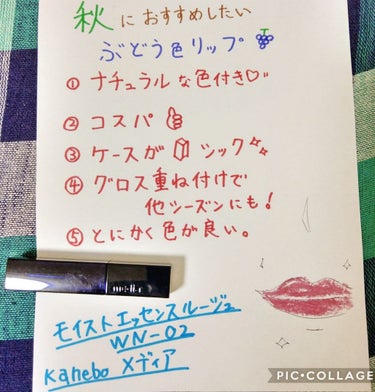 秋におすすめしたい
ぶどう色リップ
① ナチュラルな色付き♡
② コスパ
③ ケースが シック
④ グロス重ね付けで
他シーズンにも!
⑤ とにかく色が良い。
モイストエッセンスルージュ
WN-02
Kanebo メディア
PIC•COLLAGE